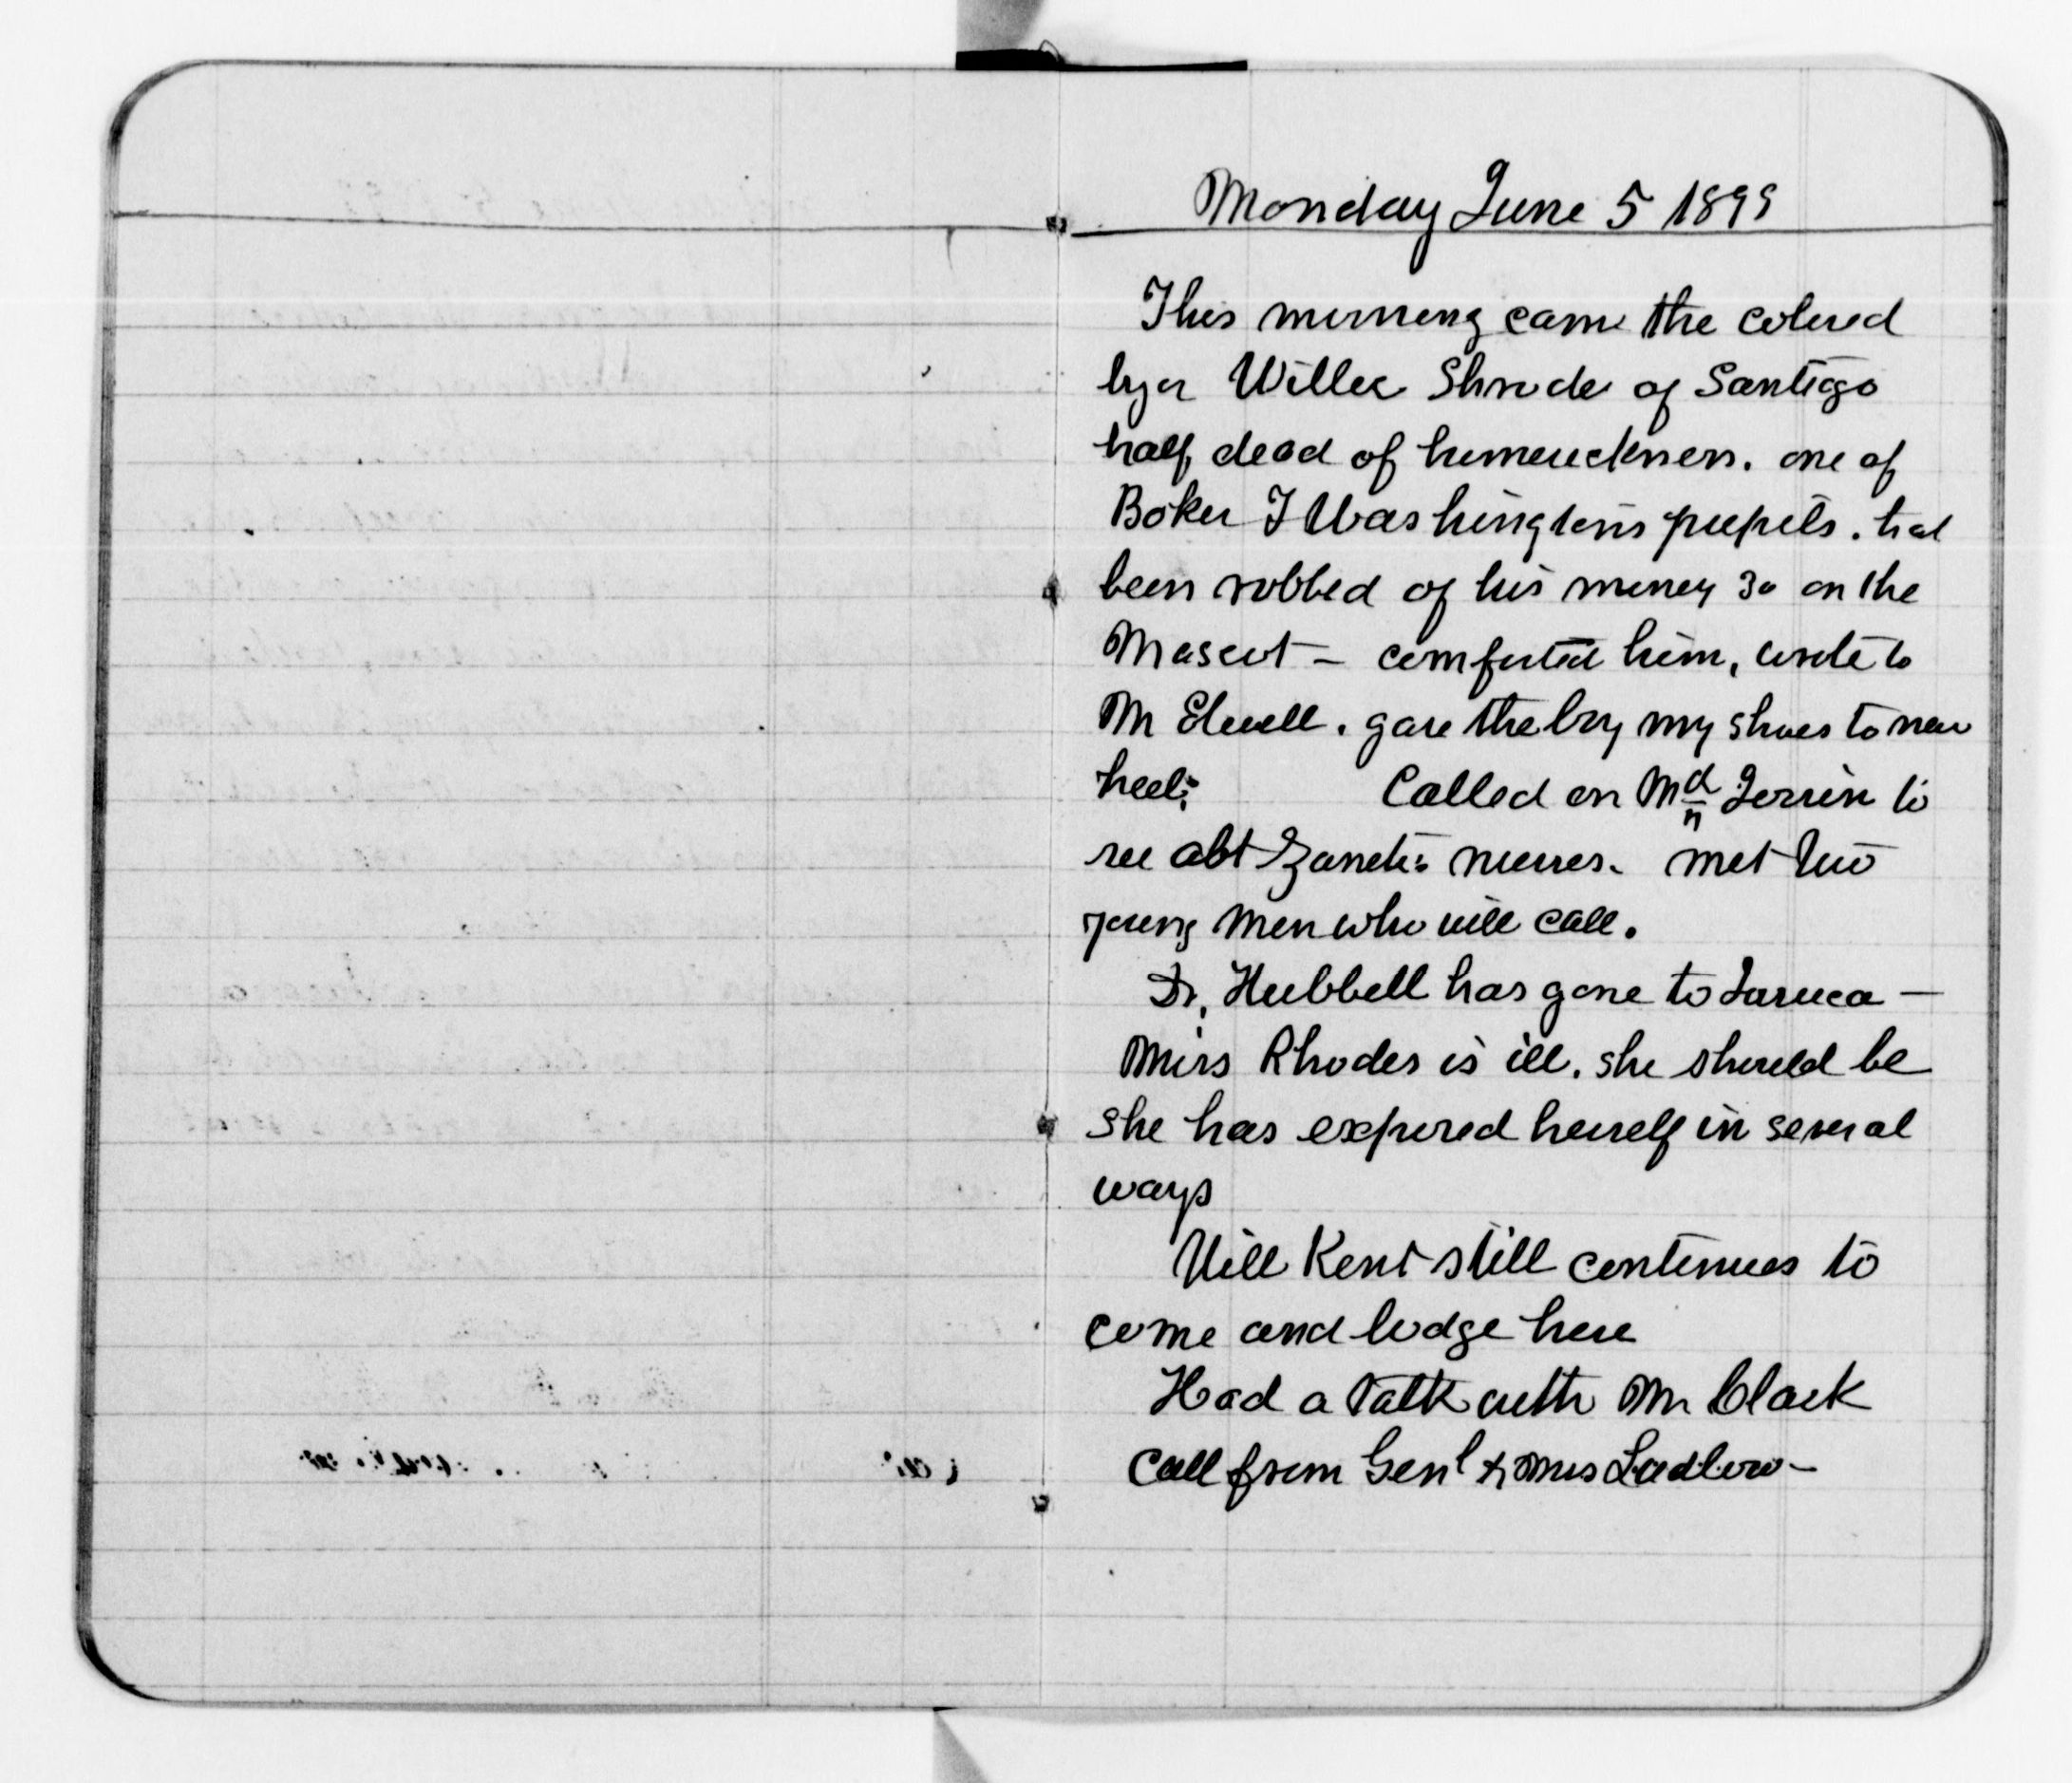 Monday June 5 1899
This morning came the colored
boy Willie Shrode of Santiago
half dead of homesickness. one of
Boker T Washingtons pupils. had
been robbed of his money 30 on the
Mascot – comforted him, wrote to
Mr Elwell. gave the boy my shoes to new
heel: Called on Md Jorrin to
see abt nurses. met two
young men who will call.
Dr. Hubbell has gone to Jaruca –
Miss Rhodes is ill. she should be
she has exposed herself in several
ways
Will Kent still continues to
come and lodge here
Had a talk with Mr Clark
Call from Genl & Mrs Ludlow –